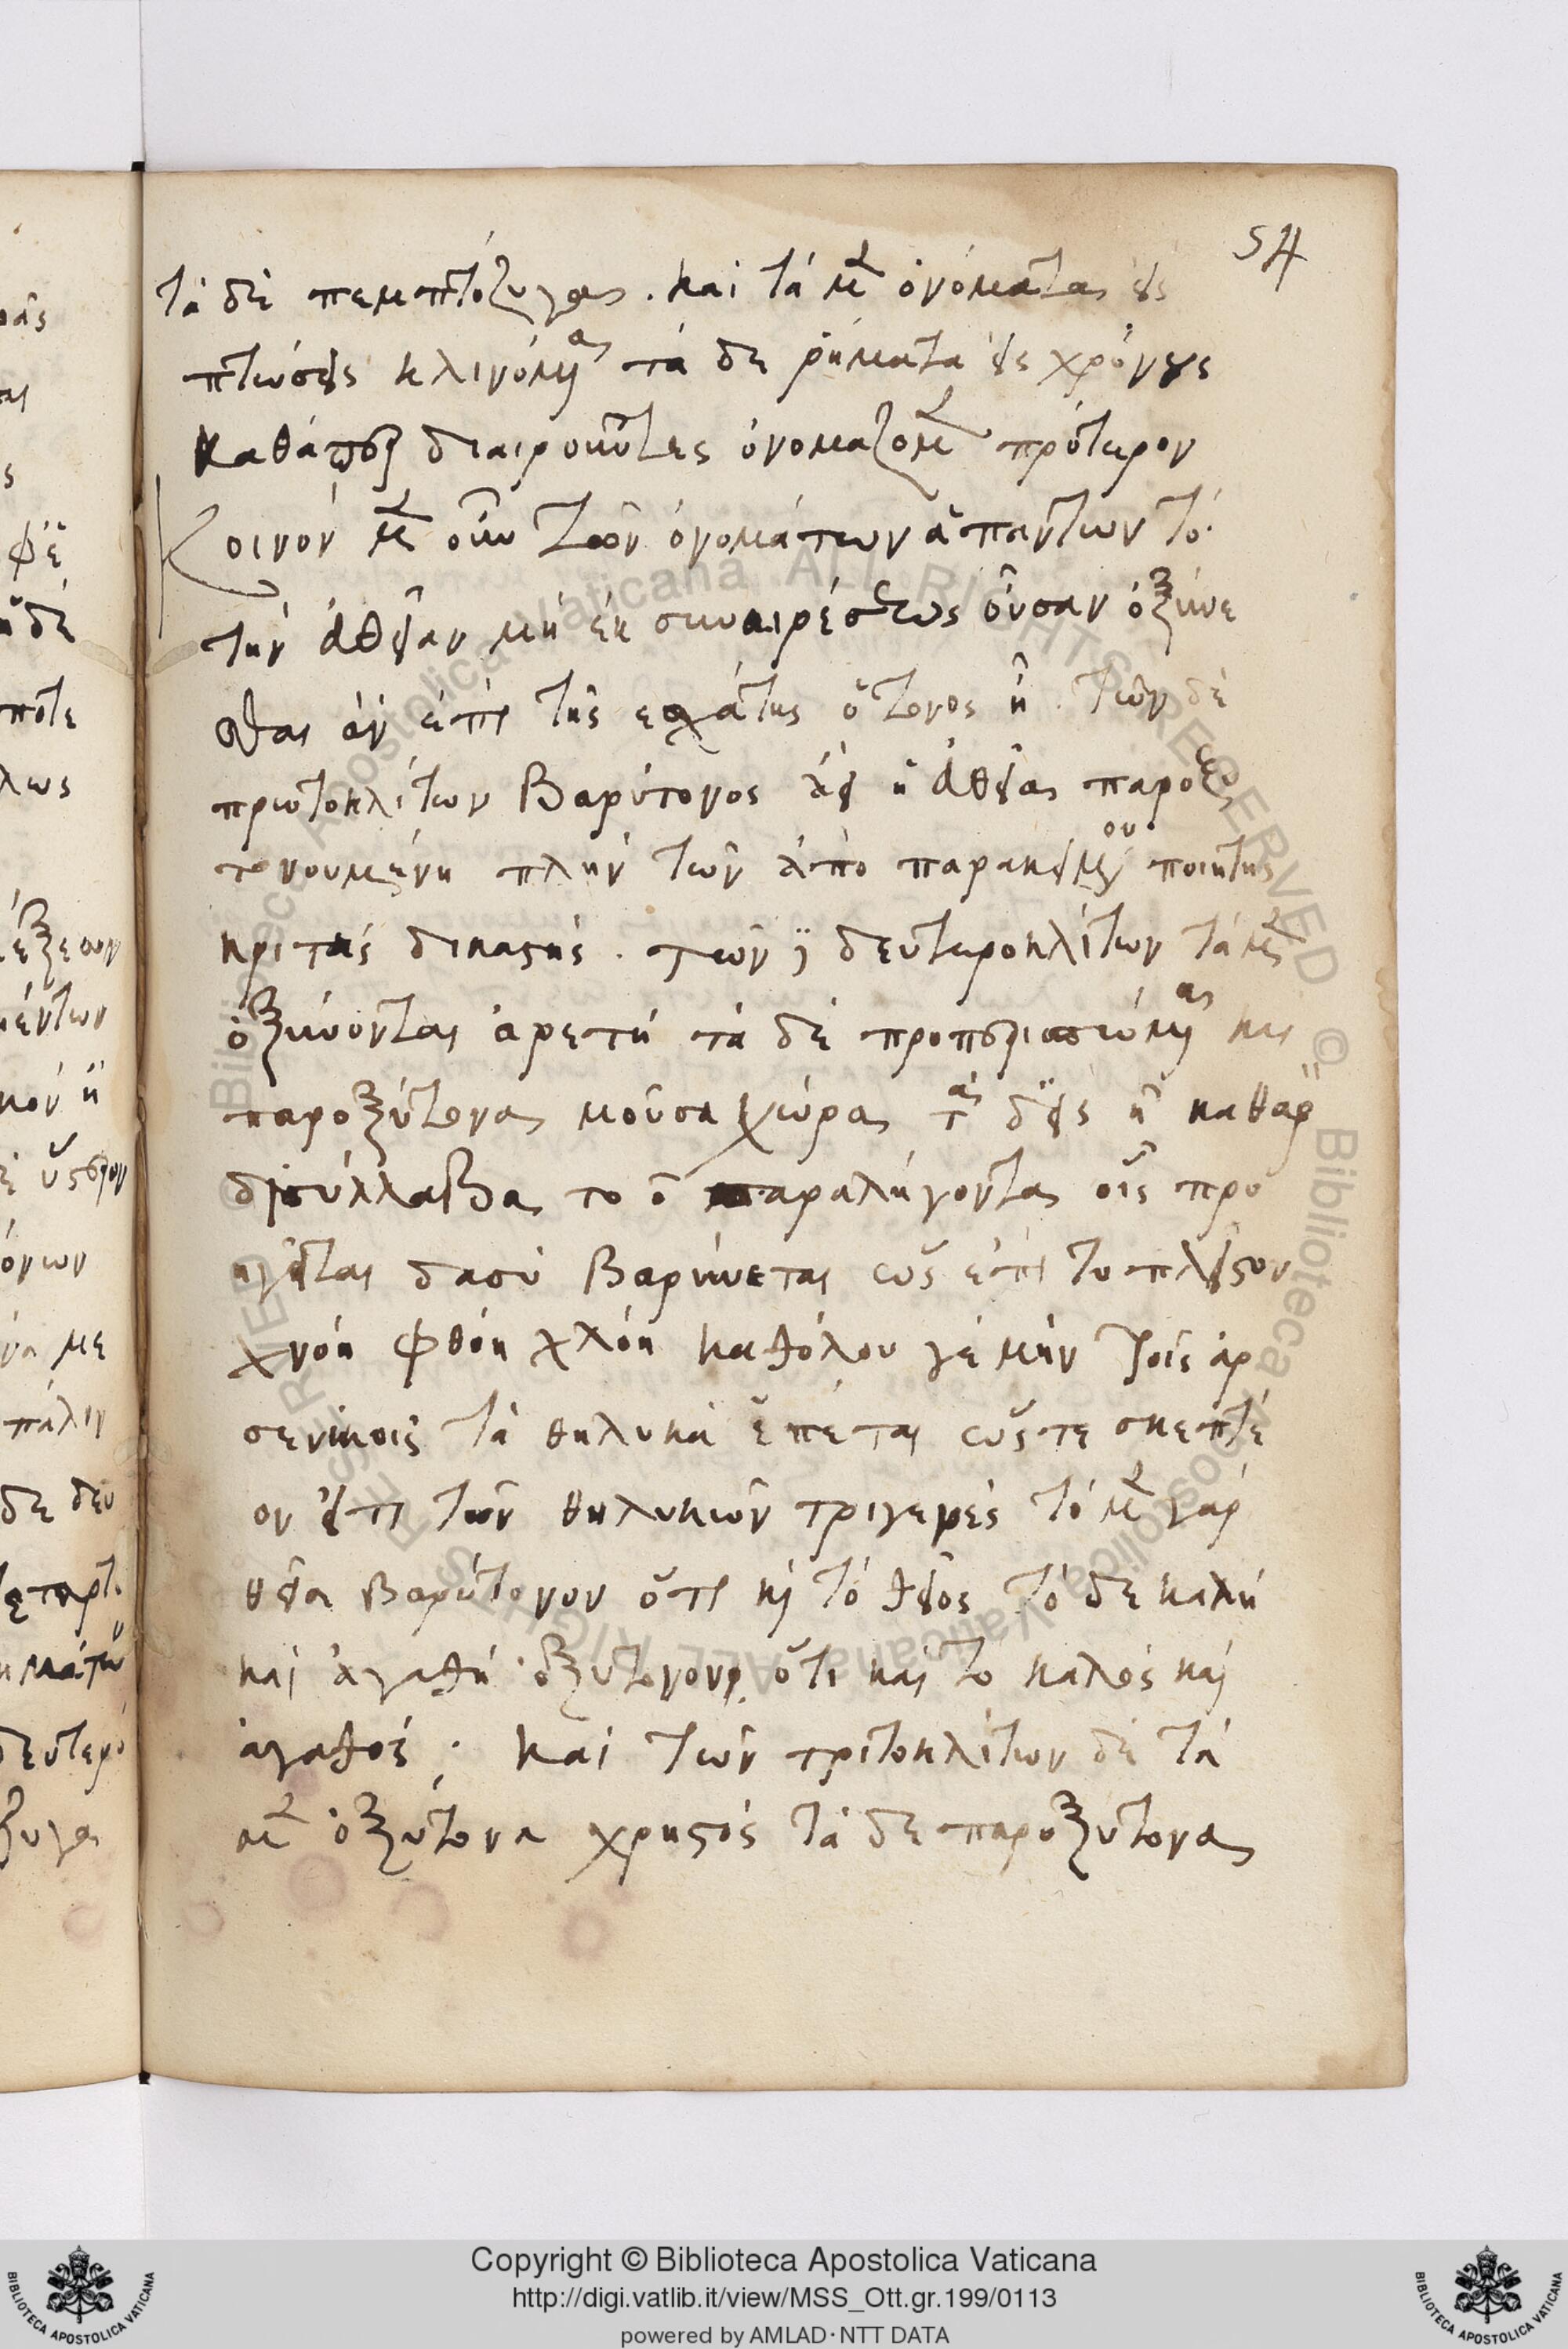 54
τὰ δὲ πεμπτόζυγα. καὶ τὰ μὲν ὀνόματα εἰς
πτώσεις κλινόμενα τὰ δε ῥήματα εἰς χρόνους
καθάπερ διαιροῦντες ὀνομάζομεν πρότερον
Κοινὸν μὲν οὖν τῶν ὀνομάτων ἁπάντων τὸ
τὴν εὐθεῖαν μὴ ἐκ συναιρέσεως οὖσαν ὀξύνε
σθαι ἂν ἐπὶ τῆς ἐσχάτης ὁ τόνος ᾖ. Τῶν δὲ
πρωτοκλίτων βαρύτονος ἀεὶ ἡ εὐθεῖα παροξυ
τονουμένη πλὴν τῶν ἀπὸ παρακειμένου ποιητὴς
κριτὴς δικαστής. τῶν δὲ δευτεροκλίτων τὰ μὲν
ὀξύνονται ἀρετή τὰ δὲ προπερισπώμενα καὶ
παροξύτονα μοῦσα χώρα τὰ δ' εἰς η καθαρὰ
δισύλλαβα τὸ ο παραλήγοντα οἷς προ
ηγεῖται δασὺ βαρύνεται ὡς ἐπὶ τὸ πλεῖστον
χνόη φθόη χλόη καθόλου γε μὴν τοῖς ἀρ
σενικοῖς τὰ θηλυκὰ ἕπεται ὥστε σκεπτέ
ον ἐπὶ τῶν θηλυκῶν τριγενὲς τὸ μὲν γὰρ
θεία βαρύτονον ὅτι καὶ τὸ θεῖος τὸ δε καλή
καὶ ἀγαθή ὀξύτονον ὅτι καὶ τὸ καλὸς καὶ
ἀγαθός. Καὶ τῶν τριτοκλίτων δὲ τὰ
μὲν ὀξύτονα χρηστός τὰ δε παροξύτονα
Copyright © Biblioteca Apostolica Vaticana
http://digi.vatlib.it/view/MSS_Ott.gr.199/0113
powered by AMLAD·NTT DATA